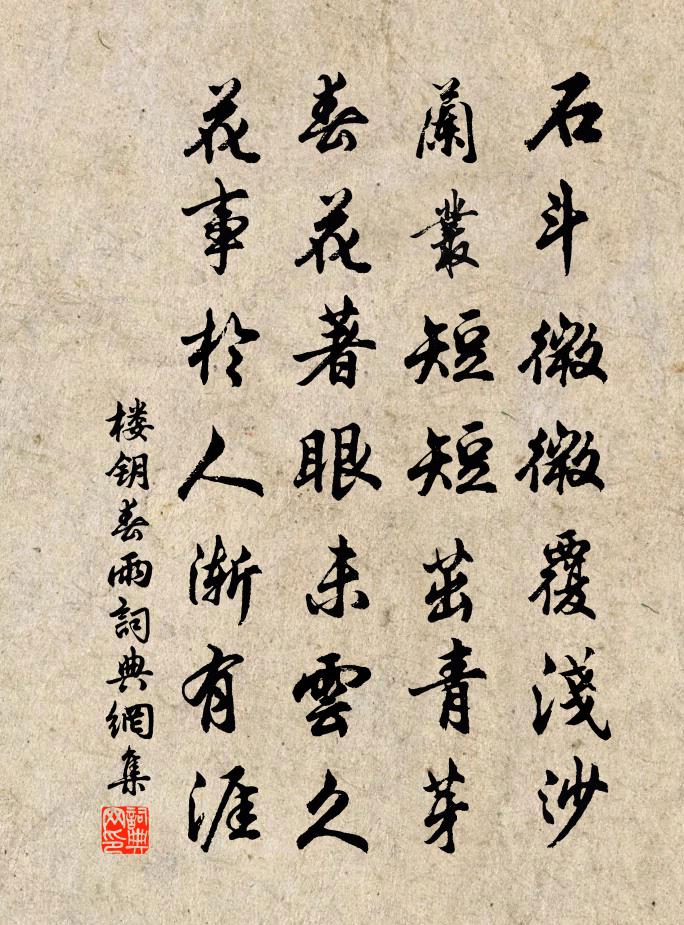 石斗微微覆淺沙
蘭叢短短茁青芽
春花著眼未雲久
花事於人漸有涯
楼钥春雨詞典網集
詞典
网印